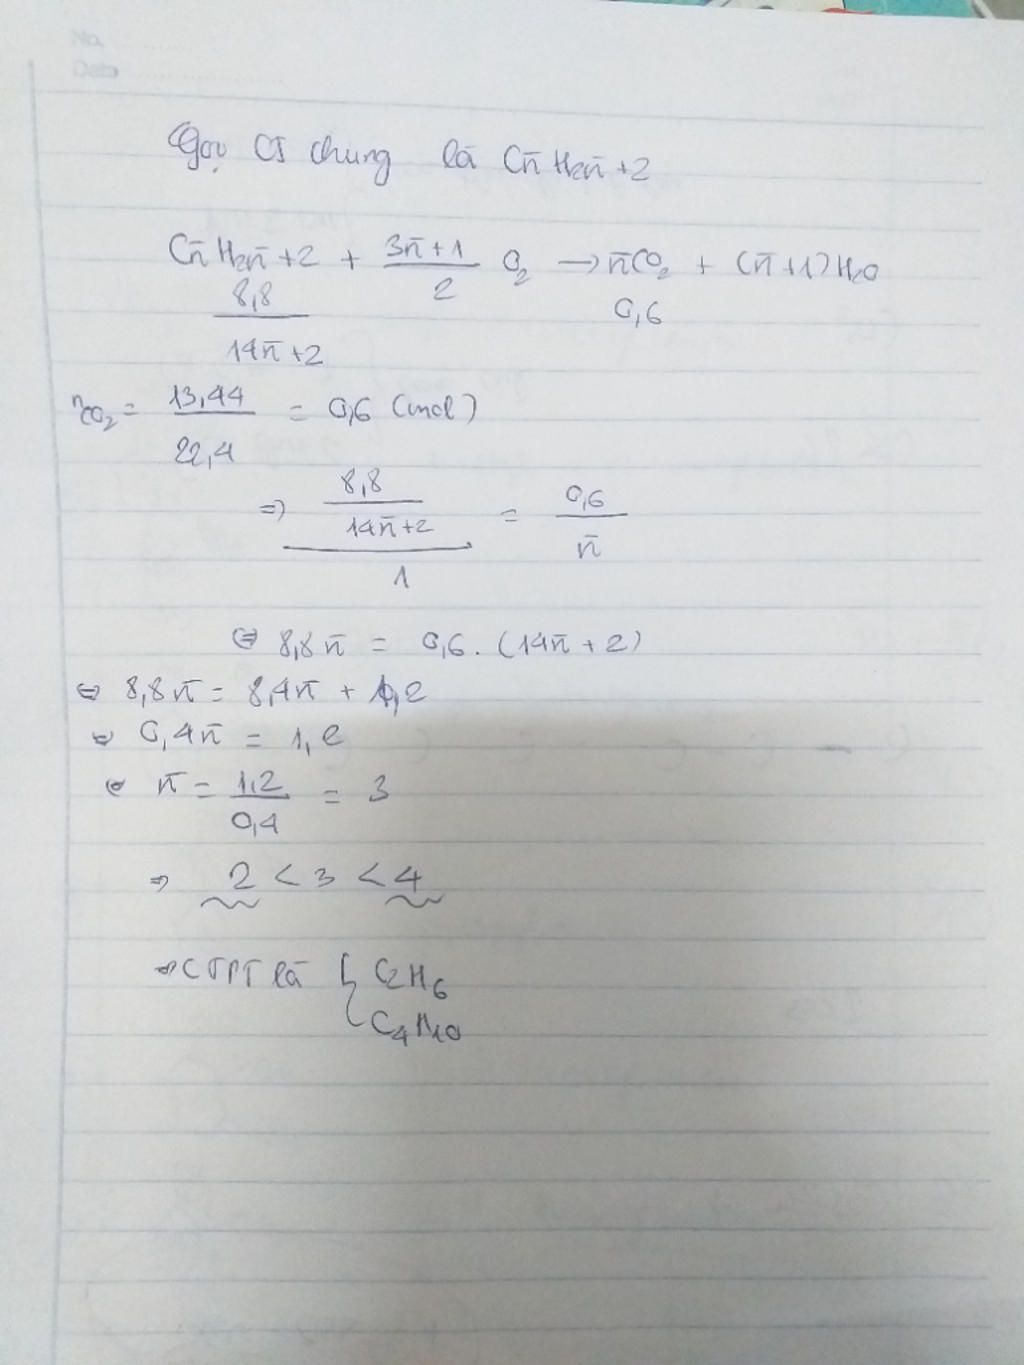 No.
Date
Gọi CT chung là Cn̄H2n̄+2
Cn̄H2n̄+2 + 3n̄+1/2 O2 → n̄CO2 + (n̄+1)H2O
8,8/14n̄+2 0,6
nCO2 = 13,44/22,4 = 0,6 (mol)
⇒ 8,8/14n̄+2/1 = 0,6/n̄
⇔ 8,8n̄ = 0,6.(14n̄+2)
⇔ 8,8n̄ = 8,4n̄ + 1,2
⇔ 0,4n̄ = 1,2
⇔ n̄ = 1,2/0,4 = 3
⇒ 2 < 3 < 4
⇒ CTPT là { C2H6
C4H10